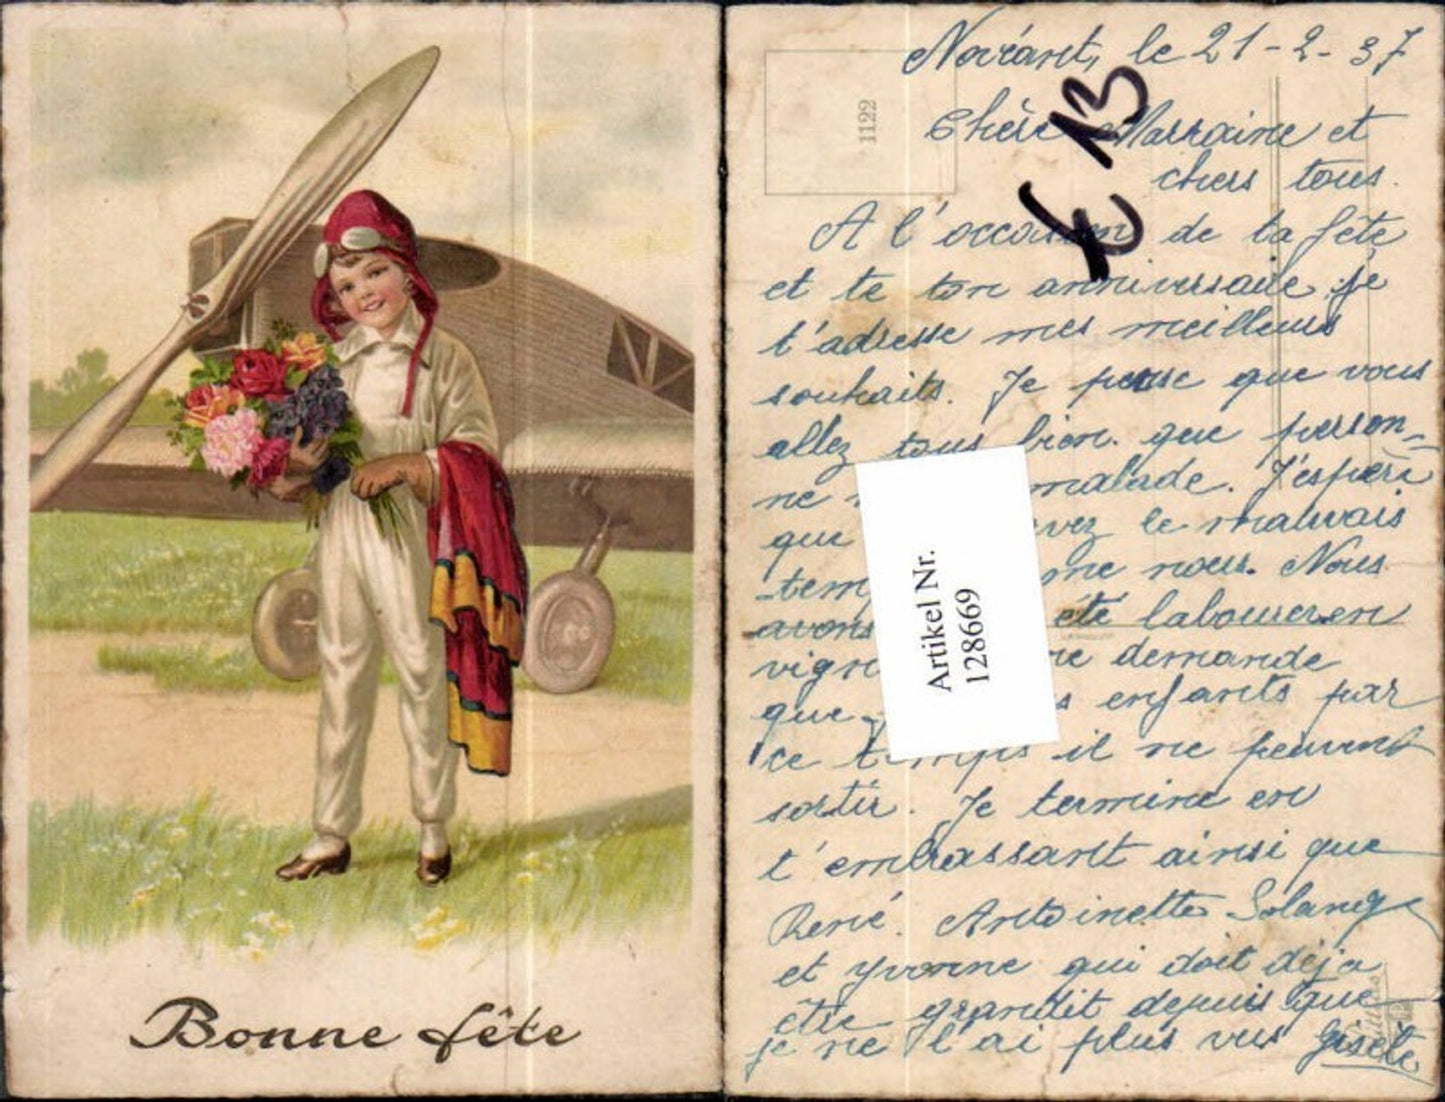 Bonne fête
1122
€ 13
Artikel Nr.
128669
Novéant, le 21-2-37
Chère Marraine et
chers tous.
A l'occasion de ta fête
et te ton anniversaire je
t'adresse mes meilleurs
souhaits. Je pense que vous
allez tous bien. que person-
ne malade. J'espère
que avez le mauvais
-temp me nous. Nous
avons été labourer en
vign me demande
que s enfants par
ce temps il ne peuvent
sortir. Je termine en
t'embrassant ainsi que
René. Antoinette Solange
et yvonne qui doit déja
être grandit depuis que
je ne l'ai plus vus Gisèle